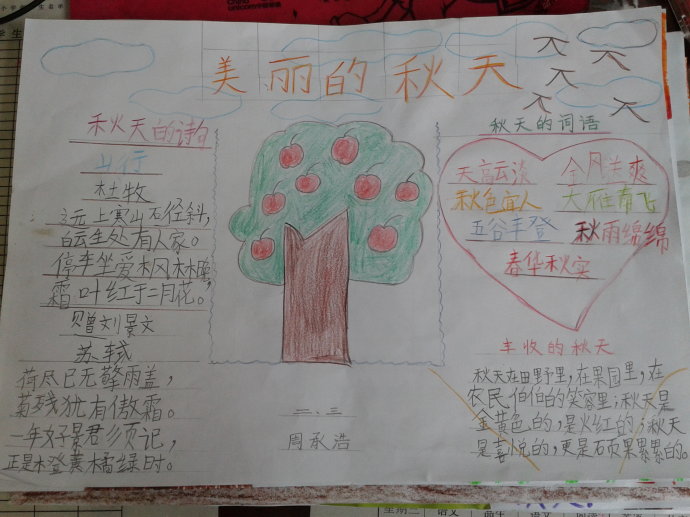 美丽的秋天
秋天的诗句
山行
杜牧
远上寒山石径斜，
白云生处有人家。
停车坐爱枫林晚，
霜叶红于二月花。
赠刘景文
苏轼
荷尽已无擎雨盖，
菊残犹有傲霜。
一年好景君须记，
正是橙黄橘绿时。
二、三
周承浩
秋天的词语
天高云淡 金风送爽
秋色宜人 大雁南飞
五谷丰登 秋雨绵绵
春华秋实
丰收的秋天
秋天在田野里，在果园里，在
农民伯伯的笑容里；秋天是
金黄色的，是火红的；秋天
是喜悦的，更是硕果累累的。